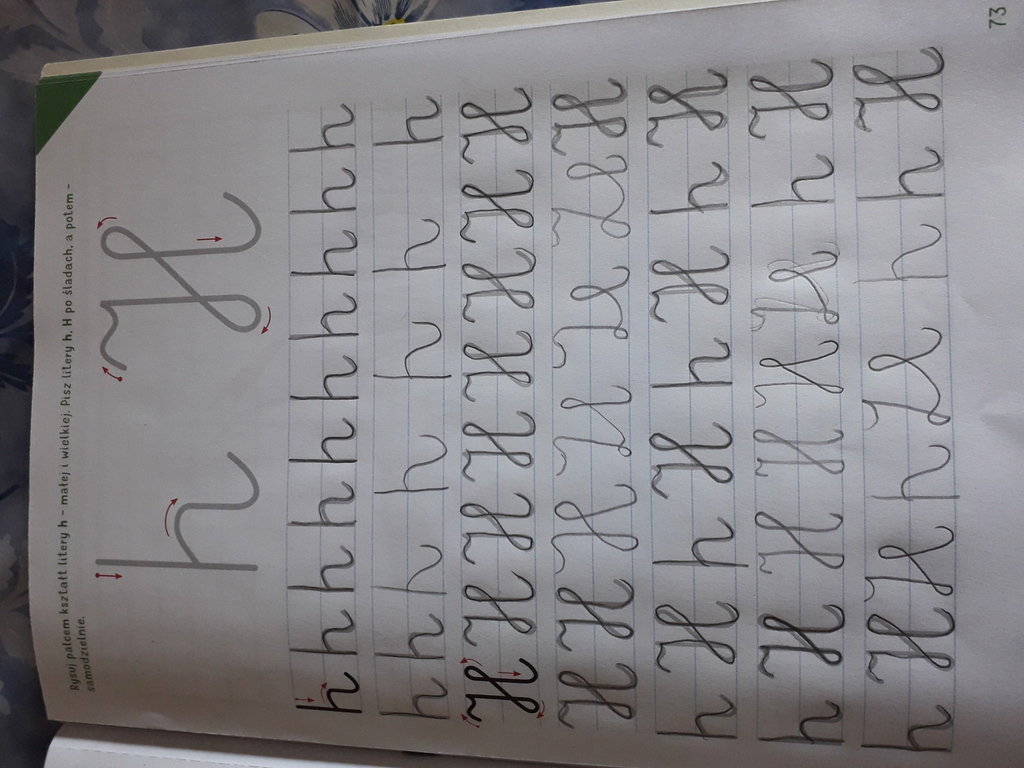 Rysuj palcem kształt litery h – małej i wielkiej. Pisz litery h, H po śladach, a potem –
samodzielnie.
h H
h h h h h h h h h h
h h h h h h h
H H H H H H H H
H H H H H H H
h H h H h H h H
h H H H H H h H
h H H h H h h H
73